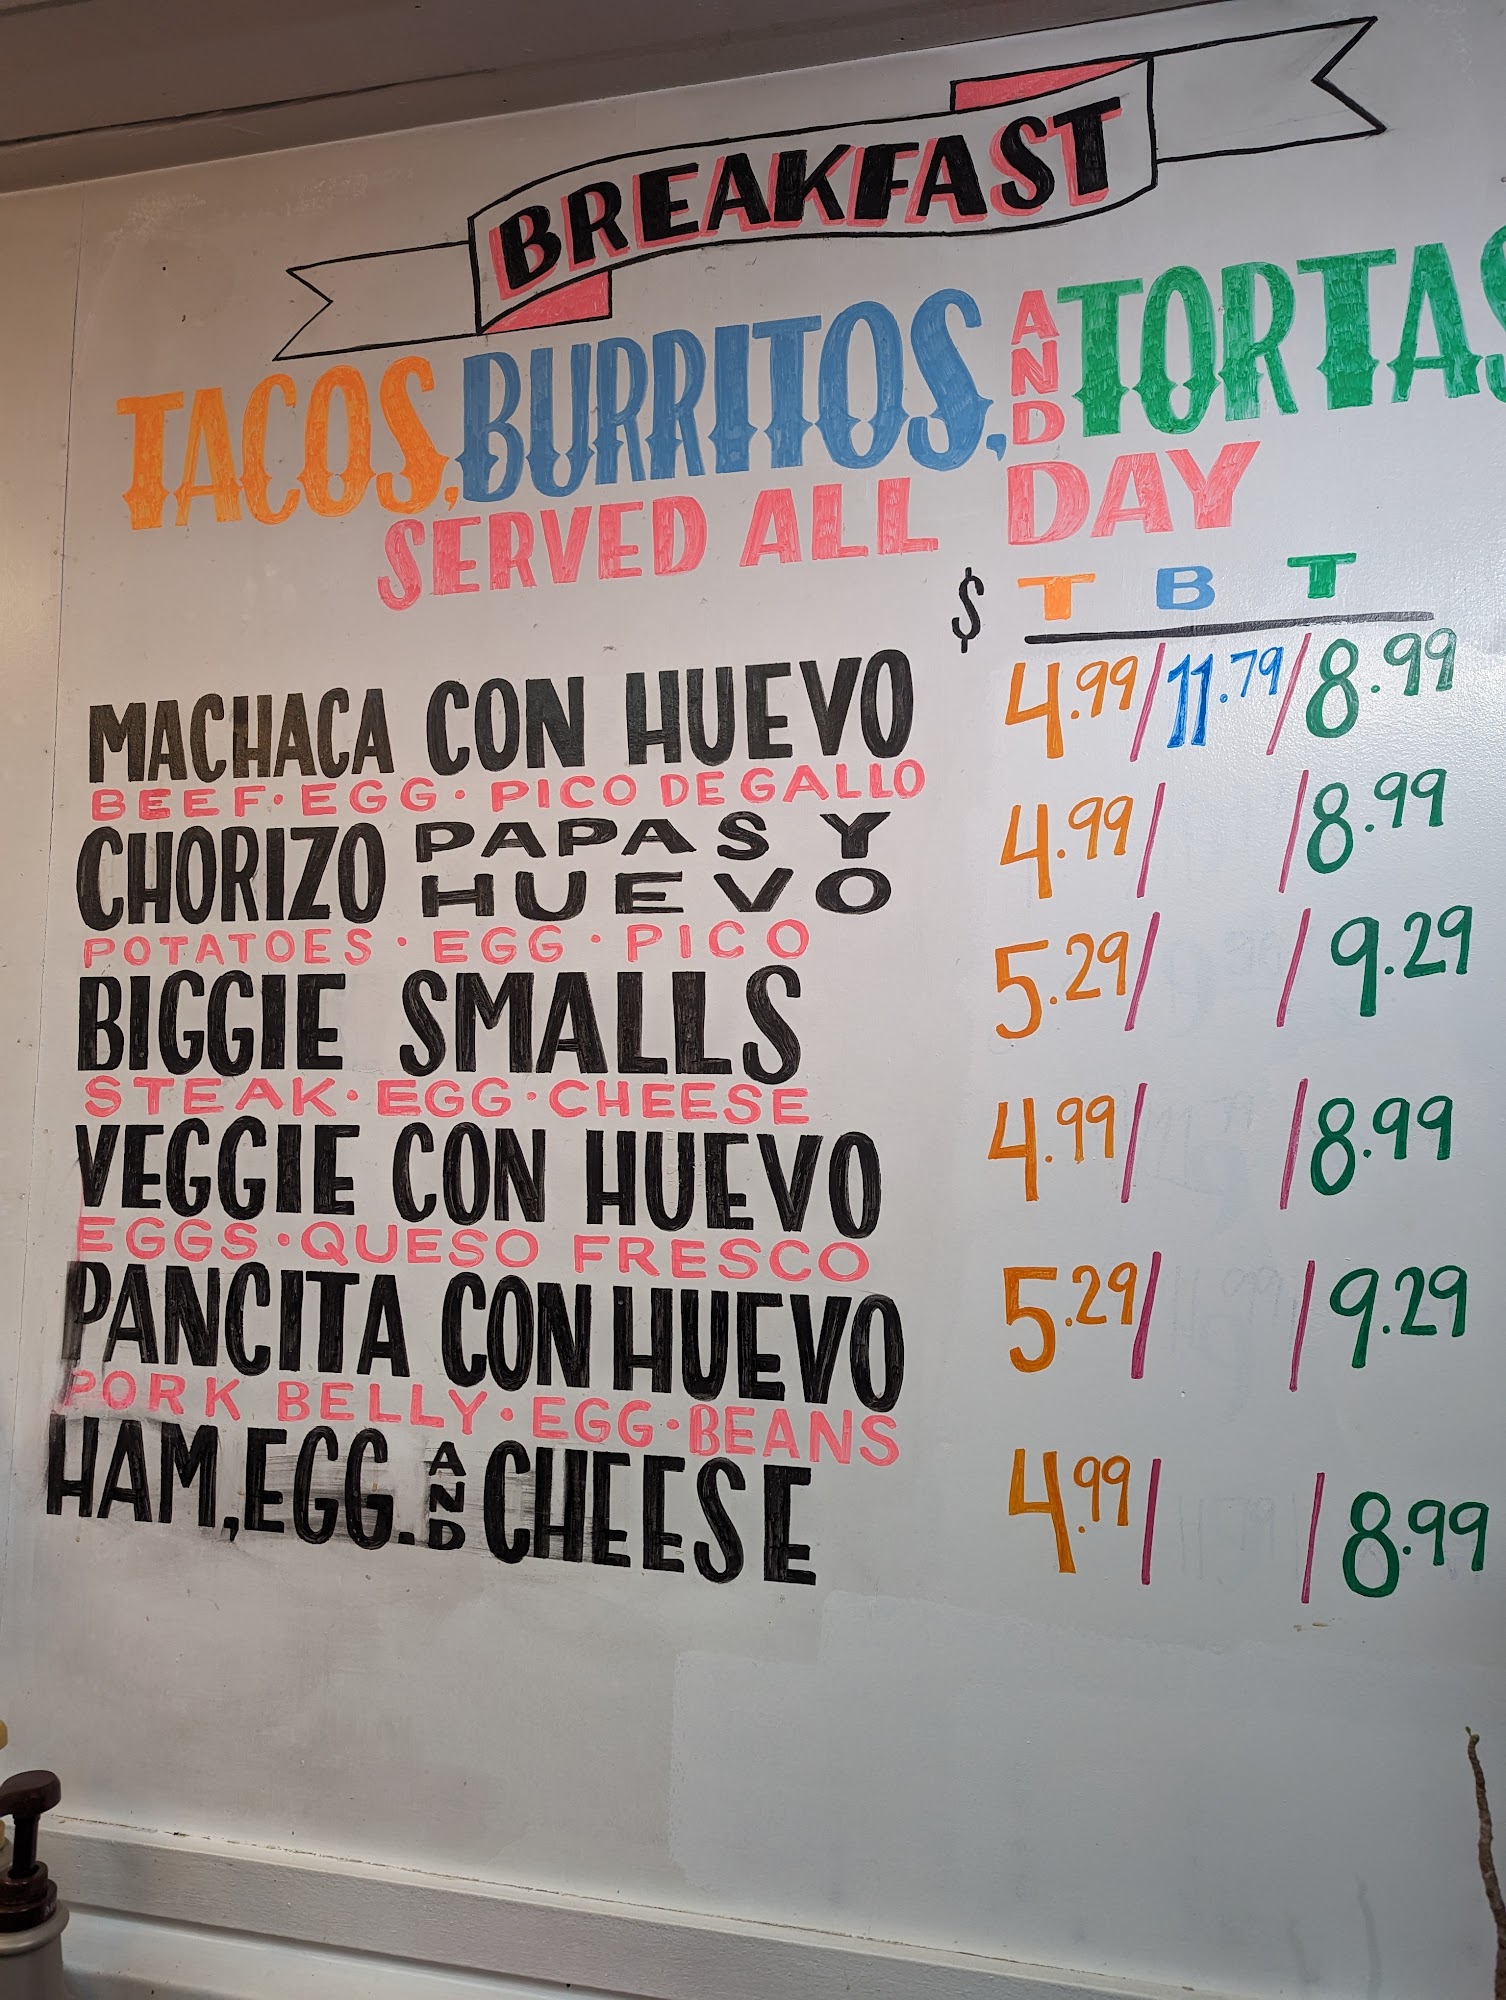 BREAKFAST
TACOS, BURRITOS, AND TORTAS
SERVED ALL DAY
$ T B T
MACHACA CON HUEVO 4.99/11.79/8.99
BEEF·EGG·PICO DE GALLO
CHORIZO PAPAS Y HUEVO 4.99/ /8.99
POTATOES·EGG·PICO
BIGGIE SMALLS 5.29/ /9.29
STEAK·EGG·CHEESE
VEGGIE CON HUEVO 4.99/ /8.99
EGGS·QUESO FRESCO
PANCITA CON HUEVO 5.29/ /9.29
PORK BELLY·EGG·BEANS
HAM, EGG. AND CHEESE 4.99/ /8.99